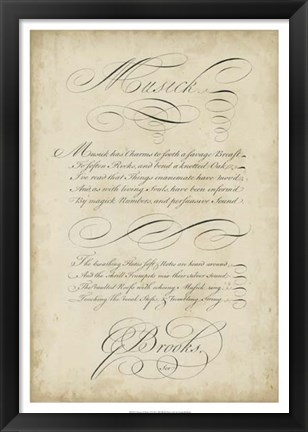 Musick
Musick has Charms to sooth a savage Breast
To soften Rocks, and bend a knotted Oak;
I've read that Things inanimate have mov'd
And as with living Souls, have been inform'd
By magick Numbers, and persuasive Sound
The breathing Flutes soft Notes are heard around
And the shrill Trumpets mix their silver Sound;
The Vaulted Roofs with echoing Musick ring
Touching the vocal & trembling String
G Brooks,